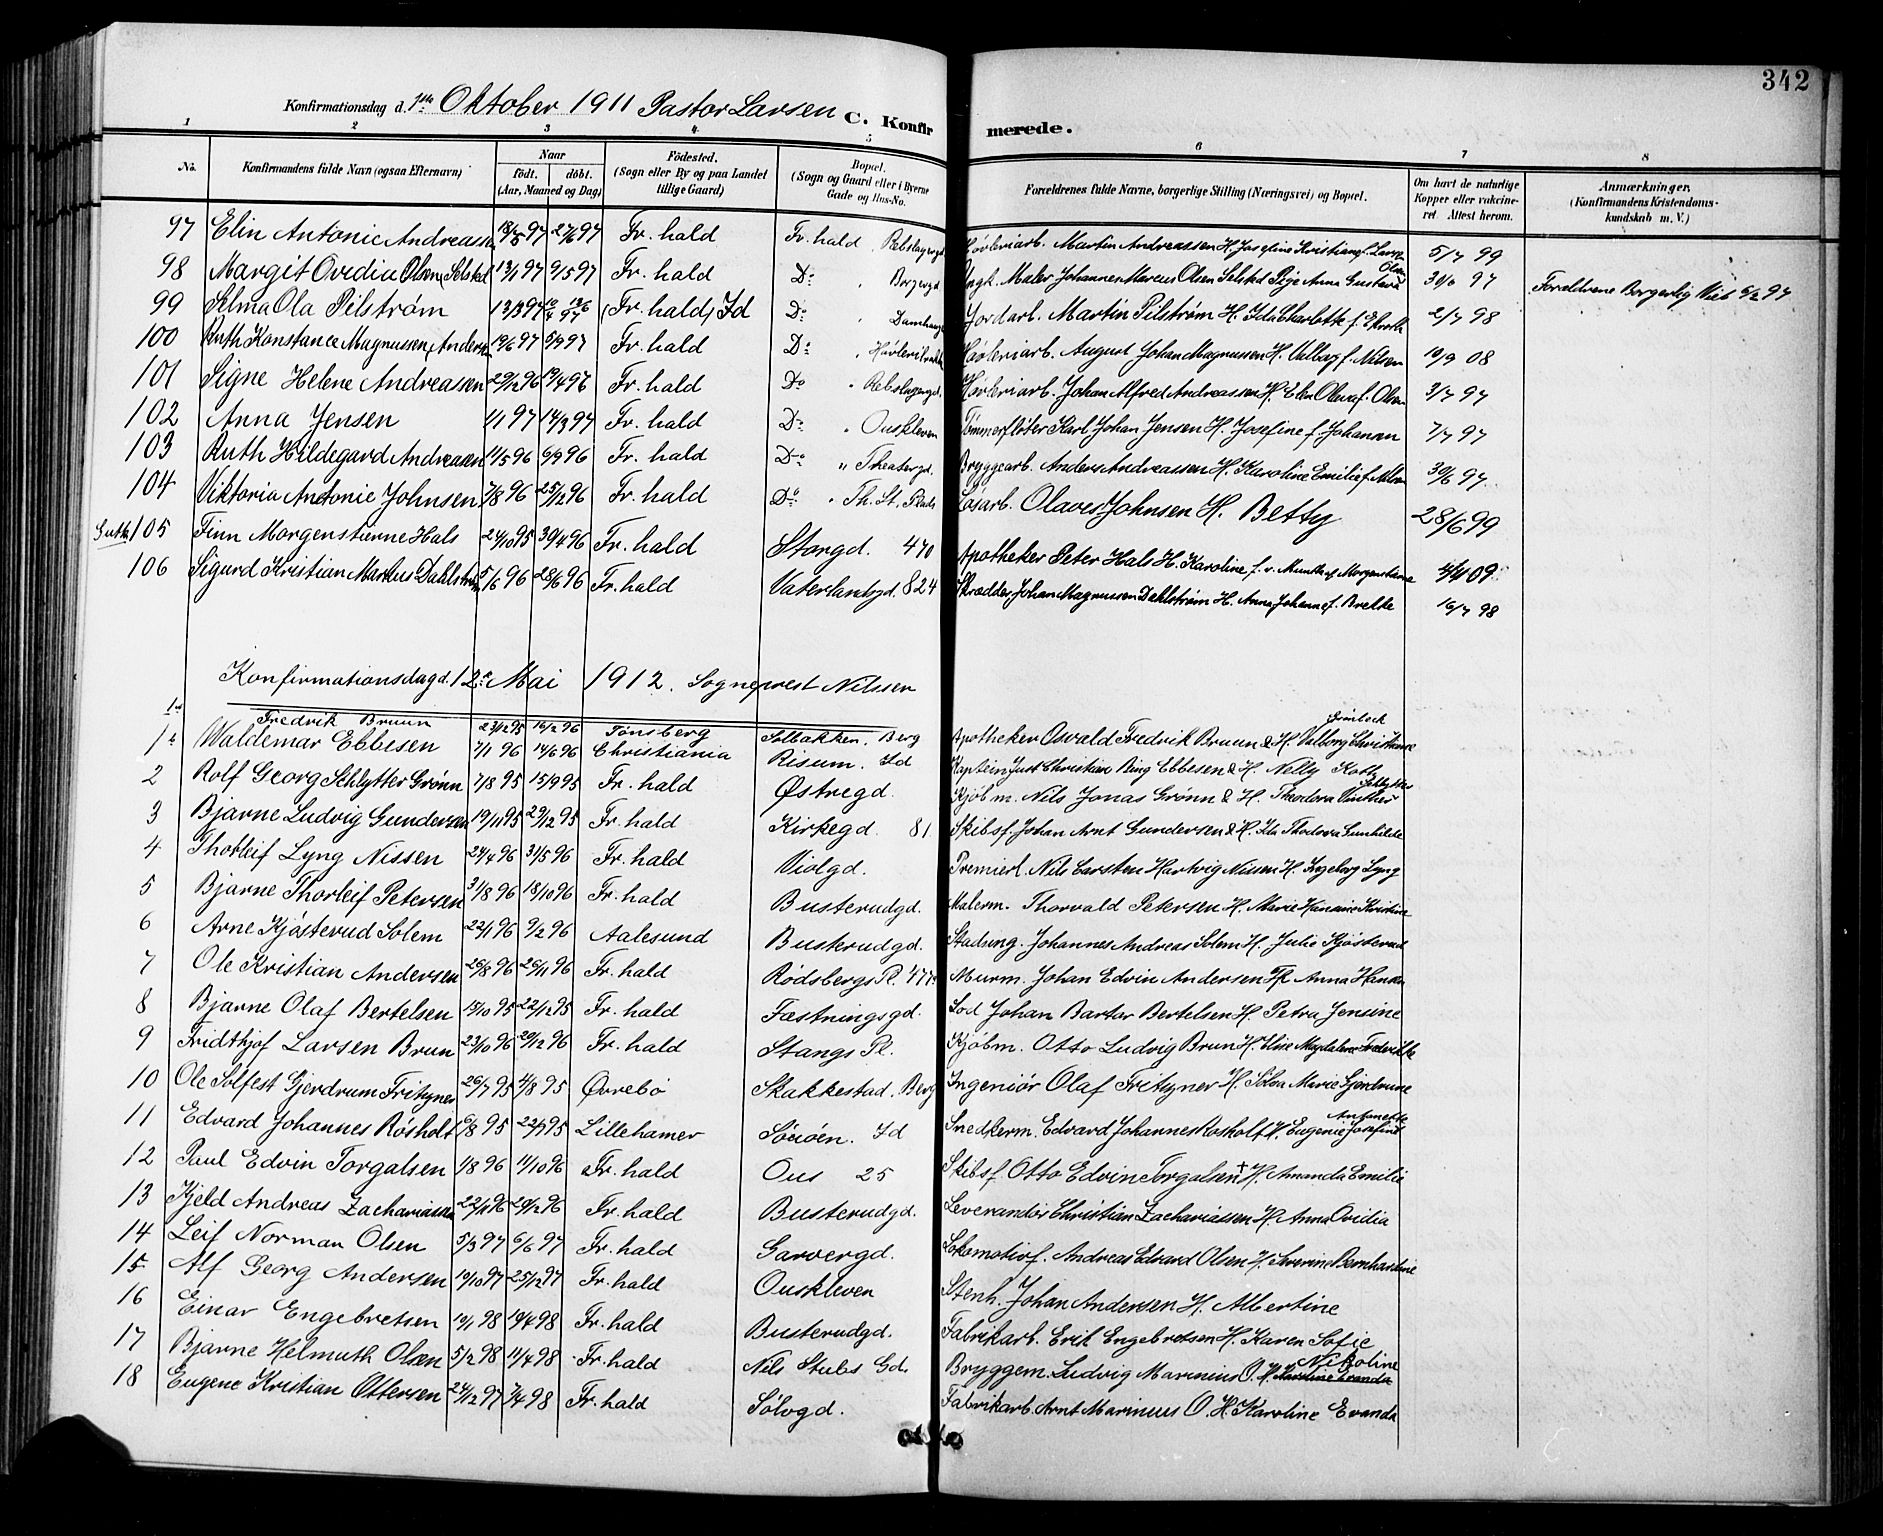 342
Konfirmationsdag d. 1ste Oktober 1911 Pastor Larsen C. Konfirmerede.
1 2 3 4 5 6 7 8
No. Konfirmandens fulde Navn (ogsaa Efternavn) Naar født. døbt. (Aar, Maaned og Dag) Fødested. (Sogn eller By og paa Landet tillige Gaard) Bopæl. (Sogn og Gaard eller i Byerne Gade og Hus-No. Forældrenes fulde Navne, borgerlige Stilling (Næringsvei) og Bopæl. Om havt de naturlige Kopper eller vakcineret. Attest herom. Anmærkninger. (Konfirmandens Kristendomskundskab m. V.)
97 Elin Antonie Andreassen 97 27/6 97 Fr. hald Fr. hald Rebslagergd. Høvleriarb. Martin Andreassen H. Josefine Kristiane f. Larsen 5/7 99
98 Margit Ovidia Olsen Selstad 13/1 97 9/5 97 Fr. hald Do " Borgergd. Ungk. Maler Johannes Marcus Olsen Selstad Pige Anna Gustava Olsen 30/10 97 Forældrene Borgerlig Viet 6/2 97
99 Selma Ola Pilstrøm 13/3 97 (Fr. hald) Id Do " Damhaugen Jordarb. Martin Pilstrøm H. Ida Charlotte f. 2/7 98
100 Ruth Konstance Magnussen, Andersen 19/6 97 5/9 97 Fr. hald Do " Høvleribrakk Høvleriarb. August Johan Magnussen H. Valborg f. Nilsen 19/9 08
101 Signe Helene Andreasen 29/12 96 19/4 97 Fr. hald Do " Rebslagergd. Høvleriarb. Johan Alfred Andreassen H. Elen Olava f. Olsen 3/7 97
102 Anna Jensen 1/1 97 14/3 97 Fr. hald Do " Ouskleven Tømmerfløter Karl Johan Jensen H. Josefine f. Johansen 7/7 97
103 Ruth Hildegard Andreasen 11/5 96 6/9 96 Fr. hald Do " Theatergd. Bryggearb. Anders Andreassen H. Karoline Emilie f. 30/6 97
104 Viktoria Antonie Johnsen 7/8 96 25/12 96 Fr. hald Do " Th. St. Plads Løsarb. Olaves Johnsen H. Betty 28/6 99
Gutter 105 Finn Morgenstierne Hals 24/10 95 30/4 96 Fr. hald Storgd. 470 Apotheker Peter Hals H. Karoline f. v. Munthe af Morgenstierne 09
106 Sigurd Kristian Markus Dahlstrøm 5/6 96 28/6 96 Fr. hald Vaterlandsgd. 824 Skrædder Johan Magnussen Dahlstrøm H. Anna Johanne f. Brekke 16/7 98
Konfirmationsdag d. 12te Mai 1912. Sogneprest Nilssen
Fredrik Bruun 23/12 95 16/2 96 Tønsberg Solbakken. Berg Apotheker Osvald Fredrik Bruun & H. Valborg Christiane Grønbech
1 Waldemar Ebbesen 7/1 96 14/6 96 Christiania Risum. Id Kaptein Just Christian Bing Ebbesen & H. Nelly
2 Rolf Georg Schlytter Grønn 7/8 95 15/9 95 Fr. hald Østregd. Kjøbm. Nils Jonas Grønn & H. Theodora Vinther Schlytter
3 Bjarne Ludvig Gundersen 19/11 95 29/12 95 Fr. hald Kirkegd. 81 Skibsf. Johan Arnt Gundersen & H. Ida Thodora Gunhilde
4 Thorleif Lyng Nissen 24/4 96 31/5 96 Fr. hald Violgd. Premierl. Nils Carsten Hartvig Nissen H. Ingeborg Lyng
5 Bjarne Thorleif Petersen 31/8 96 18/10 96 Fr. hald Busterudgd. Malerm. Thorvald Petersen H. Marie Kristine
6 Arne Kjøsterud Solem 22/1 96 9/2 96 Aalesund Busterudgd. Stadsing. Johannes Andreas Solem H. Julie Kjøsterud
7 Ole Kristian Andersen 26/8 96 26/11 96 Fr. hald Rødsbergs Pl. 477 Murm. Johan Edvin Andersen H. Anna Hansen
8 Bjarne Olaf Bertelsen 15/10 95 22/12 95 Fr. hald Fæstningsgd. Lod Johan Bartor Bertelsen H. Petra Jensine
9 Fridthjof Larsen Brun 23/10 96 20/12 96 Fr. hald Stangs Pl. Kjøbm. Otto Ludvig Brun H. Magdalene Frederikke
10 Ole Solfest Gjerdrum Fritzner 26/7 95 4/8 95 Øvrebø Skakkestad. Berg Ingeniør Olaf Fritzner H. Marie Gjerdrum
11 Edvard Johannes Røsholt 6/8 95 22/9 95 Lillehamer Id Snedkerm. Edvard Johannes Røsholt H. Eugenie Josefine Antonette
12 Paul Edvin Torgalsen 1/8 96 11/10 96 Fr. hald Ous 25 Skibsf. Otto Edvin Torgalsen + H. Amanda Emilie
13 Kjeld Andreas Zachariassen 22/11 96 20/12 96 Fr. hald Busterudgd. Leverandør Christian Zachariassen H. Anna Ovidia
14 Leif Norman Olsen 5/3 97 6/6 97 Fr. hald Garvergd. Lokomotivf. Andreas Edvard Olsen H. Severine Bernhardine
15 Alf Georg Andersen 19/10 97 25/12 97 Fr. hald Ouskleven Stenh. Johan Andersen H. Albertine
16 Einar Engebretsen 19/1 98 10/4 98 Fr. hald Busterudgd. Fabrikarb. Erik Engebretsen H. Karen Sofie
17 Bjarne Helmuth Olsen 5/2 98 11/4 98 Fr. hald Nils Stubs Gd. Bryggem. Ludvig Marinius O. H. Nikoline
18 Eugene Kristian Ottersen 24/12 97 7/4 98 Fr. hald Sølvgd. Fabrikarb. Arnt Marinius O. H. Karoline Evanda